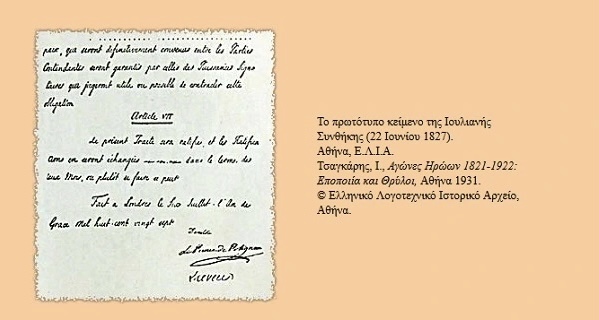 paix, qui seront définitivement convenus entre les Parties
Contendantes seront garantis par celles des Puissances Signa
taires qui jugeront utile ou possible de contracter cette
obligation
Article VII
Le présent Traité sera ratifié, et les Ratifica
seront échangées dans le terme, des
deux Mois, ou plutôt si faire se peut
Fait à Londres le Six Juillet, l'An de
Grace Mil huit cent vingt sept
Le Prince de Polignac
Lieven
Το πρωτότυπο κείμενο της Ιουλιανής
Συνθήκης (22 Ιουνίου 1827).
Αθήνα, Ε.Λ.Ι.Α.
Τσαγκάρης, Ι., Αγώνες Ηρώων 1821-1922:
Εποποιία και Θρύλοι, Αθήνα 1931.
© Ελληνικό Λογοτεχνικό Ιστορικό Αρχείο,
Αθήνα.